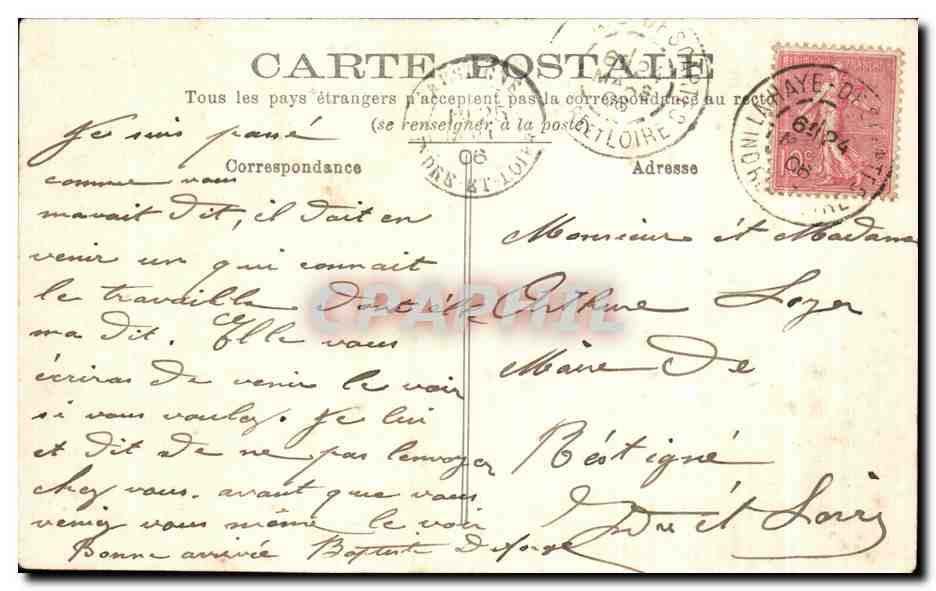 CARTE POSTALE
Tous les pays étrangers n'acceptent pas la correspondance au recto
(se renseigner à la poste)
Correspondance
Adresse
Je suis passé
comme vous
mavait dit, il doit en
venir un qui connait
le travaille dont elle
ma dit. Elle vous
écriras de venir le voir
si vous voulez. Je lui
et dit de ne pas l'envoyer
chez vous. avant que vous
veniez vous même le voir
Bonne arrivée Baptiste
Monsieur ét Madame
Arthur Loyer
Maire De
Réstigné
Indre ét Loire
LA HAYE-DESCARTES
6E/24
06
ET LOIRE
RESTIGNÉ
06
INDRE-ET-LOIRE
CPAPHIL